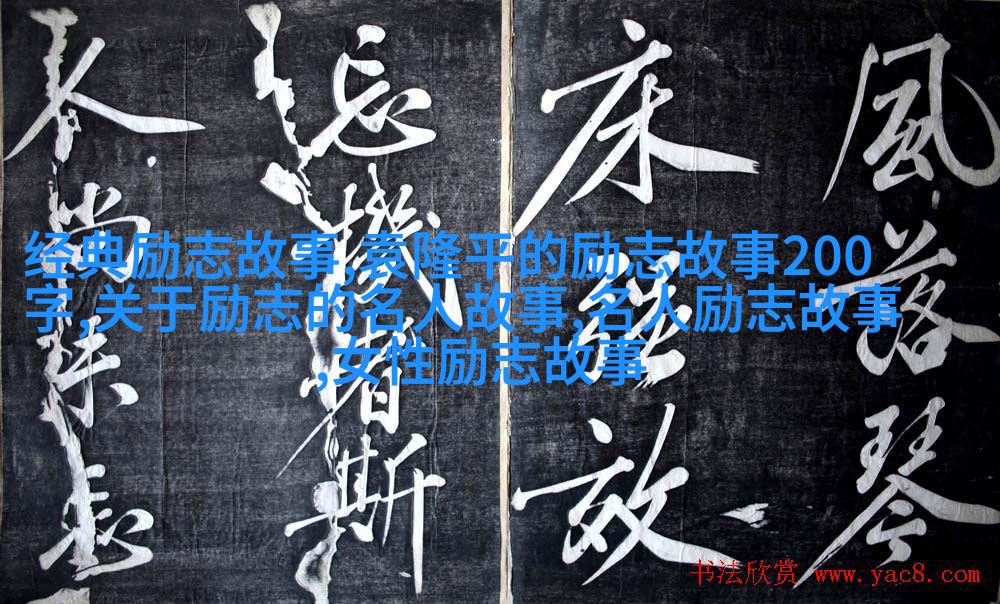 風落琴
床故
忘機者斯
尚
经典励志故事,袁隆平的励志故事200
字,关于励志的名人故事,名人励志故事
,女性励志故事
书法欣赏 www.yac8.com